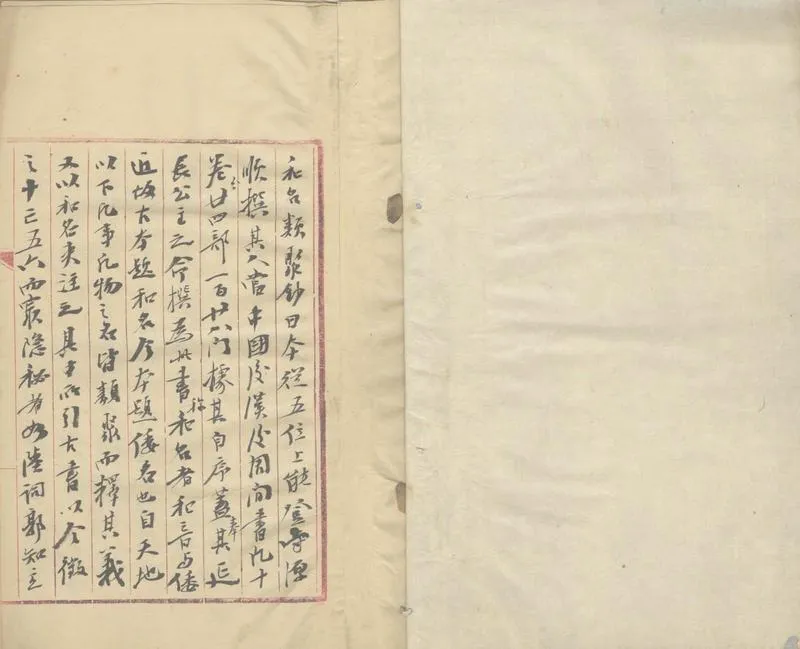 和名類聚鈔日本從五位上能登守源
順撰其人當中國後漢後周間書凡十
卷廿四部一百廿八門據其自序蓋奉其延
長公主之命撰爲此書稱和名者和音与倭
近故古本題和名今本題倭名也自天地
以下凡事凡物之名皆類聚而釋其義
又以和名夾注之其中所引古書以今徵
之十已五六而最隱秘者如陸詞郭知玄